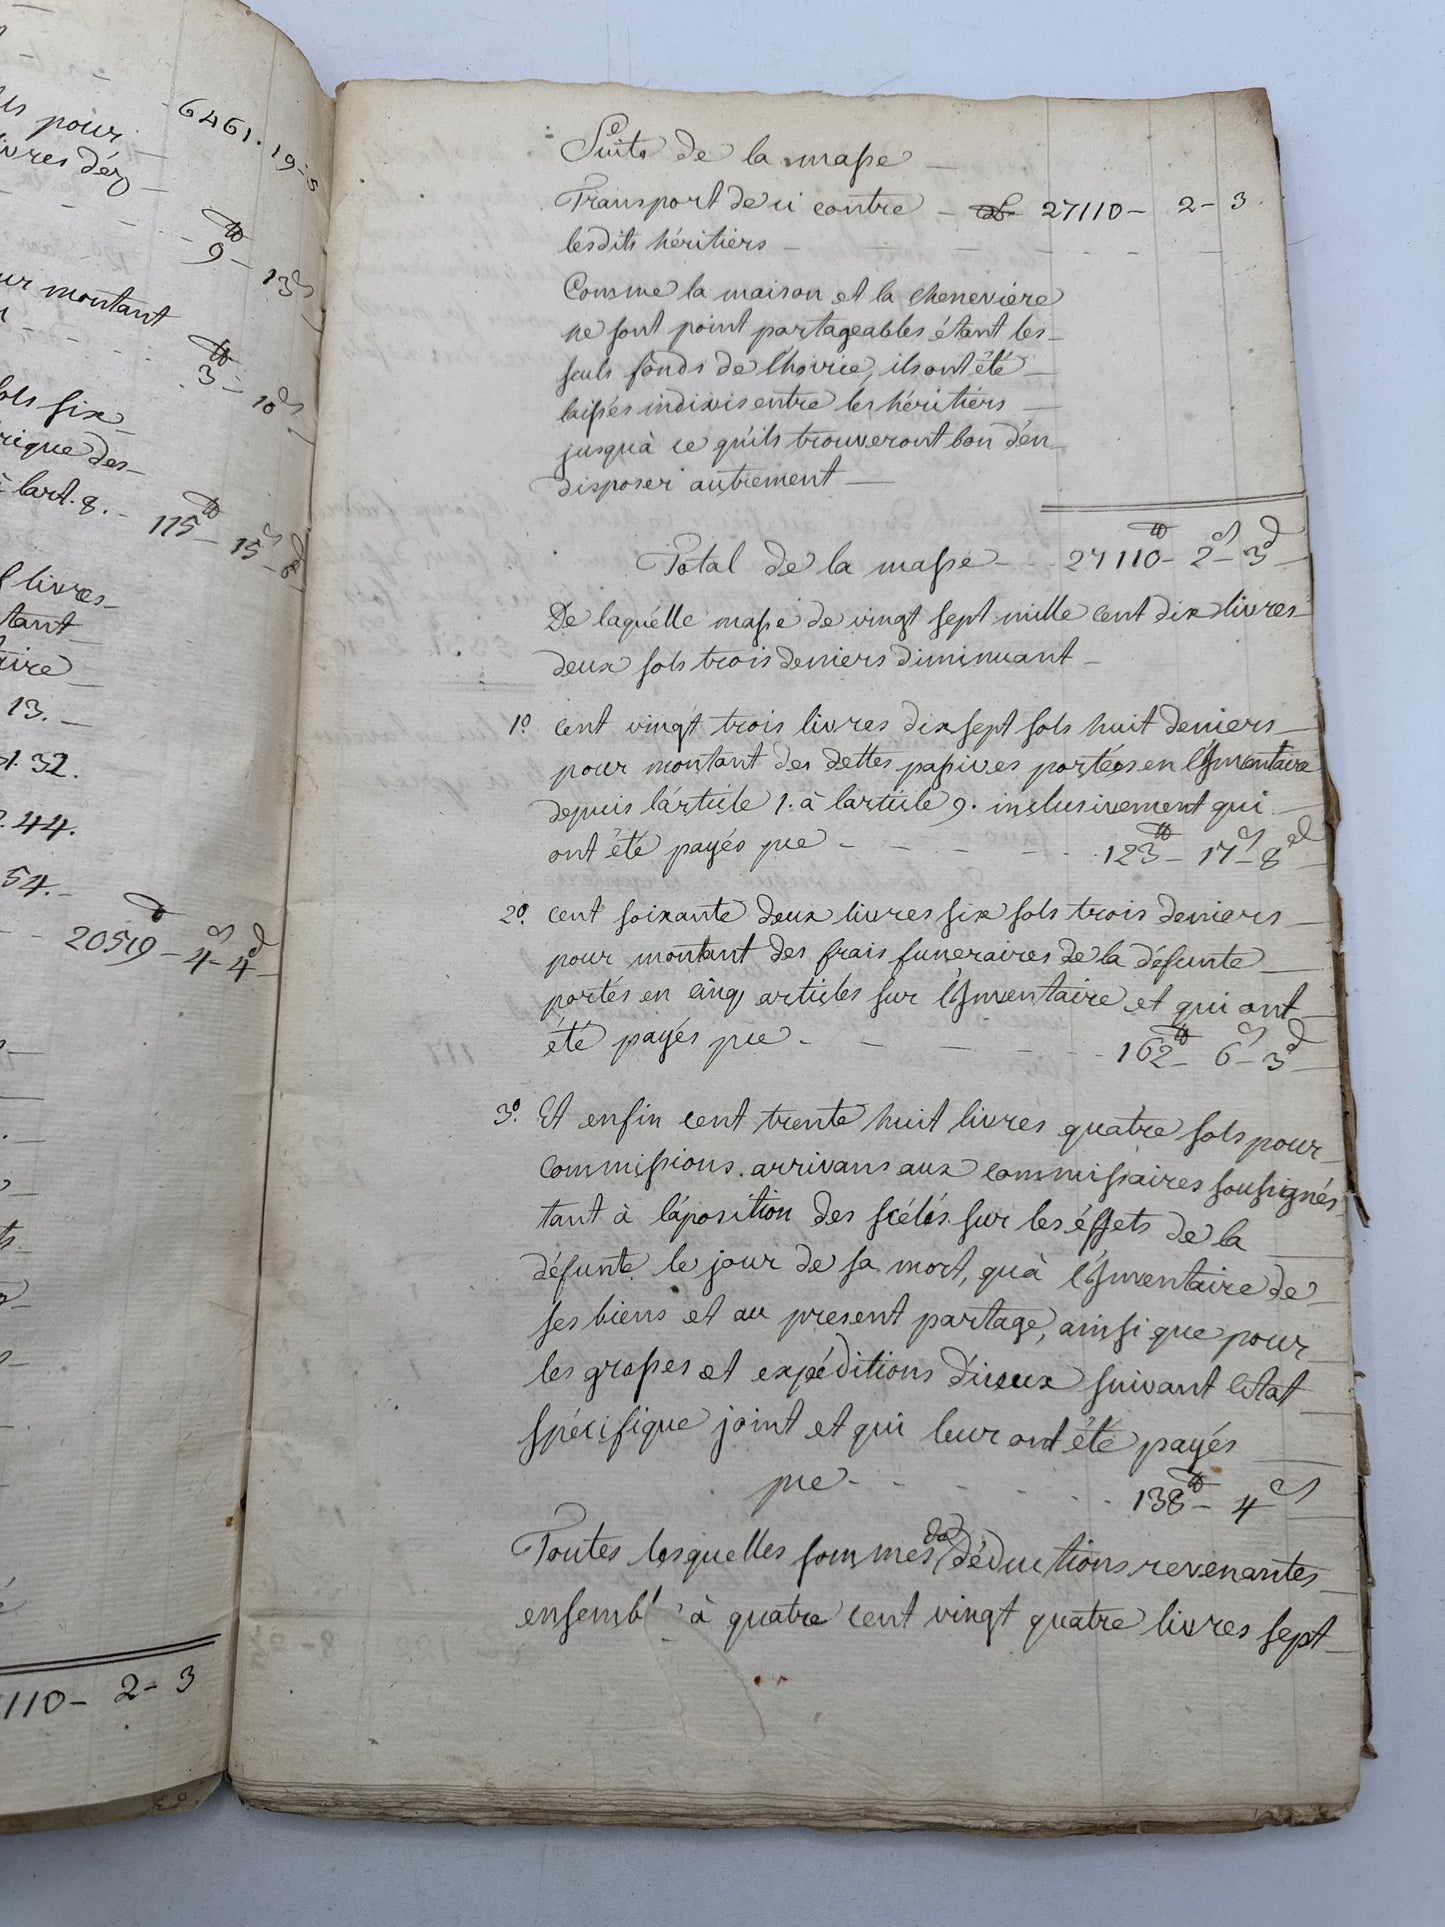 6461. 19-5
pour
livres dér
9 - 13s
ur montant
3 - 10s
sols six
rique des
lart. 8. - 115tt 15s 6d
livres
tant
aire
13.
32.
44.
54.
20519 - 4s 4d
110 - 2 - 3
Suite de la masse
Transport de ci contre - 27110 - 2 - 3
lesdits héritiers
Comme la maison et la chenevière
ne sont point partageables étant les
seuls fonds de lhoirie, ils ont été
laissés indivis entre les héritiers
jusquà ce quils trouveront bon dén
disposer autrement
Total de la masse - 27110tt 2s 3d
De laquélle masse de vingt sept mille cent dix livres
deux sols trois deniers diminuant
1o. cent vingt trois livres dix sept sols huit deniers
pour montant des dettes passives portées en lJnventaire
depuis lárticle 1. à larticle 9. inclusivement qui
ont été payés pce - 123tt 17s 8d
2o. cent soixante deux livres six sols trois deniers
pour montant des frais funeraires de la défunte
portés en cinq articles sur lJnventaire et qui ont
été payés pce - 162tt 6s 3d
3o. Et enfin cent trente huit livres quatre sols pour
Commissions arrivans aux commissaires soussignés
tant à láposition des scélés sur les éffets de la
défunte le jour de sa mort, quà lJnventaire de
ses biens et au present partage, ainsi que pour
les grosses et expéditions dîceux suivant létat
spécifique joint et qui leur ont été payés
pce - 138tt 4s
Toutes lesquelles sommes de déductions revenantes
ensembl à quatre cent vingt quatre livres sept